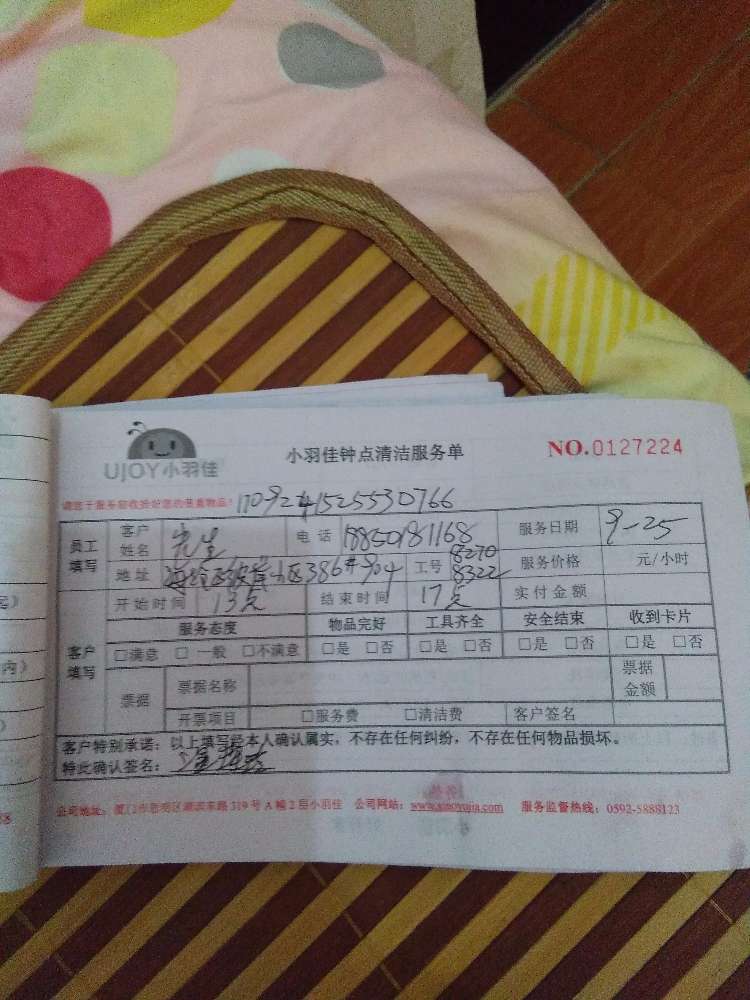 UJOY小羽佳
小羽佳钟点清洁服务单
NO.0127224
请您于服务前收捡好您的贵重物品!
员工填写 客户姓名 先生 电话 18850181168 服务日期 9-25
地址 小区386#904 工号 8270 8322 服务价格 元/小时
开始时间 13点 结束时间 17点 实付金额
客户填写 服务态度 物品完好 工具齐全 安全结束 收到卡片
□满意 □一般 □不满意 □是 □否 □是 □否 □是 □否 □是 □否
票据 票据名称 票据金额
开票项目 □服务费 □清洁费 客户签名
客户特别承诺:以上填写经本人确认属实,不存在任何纠纷,不存在任何物品损坏。
特此确认签名:
公司地址:厦门市思明区湖滨东路319号A幢2层小羽佳 公司网站:www.xiaoyujia.com 服务监督热线:0592-5888123